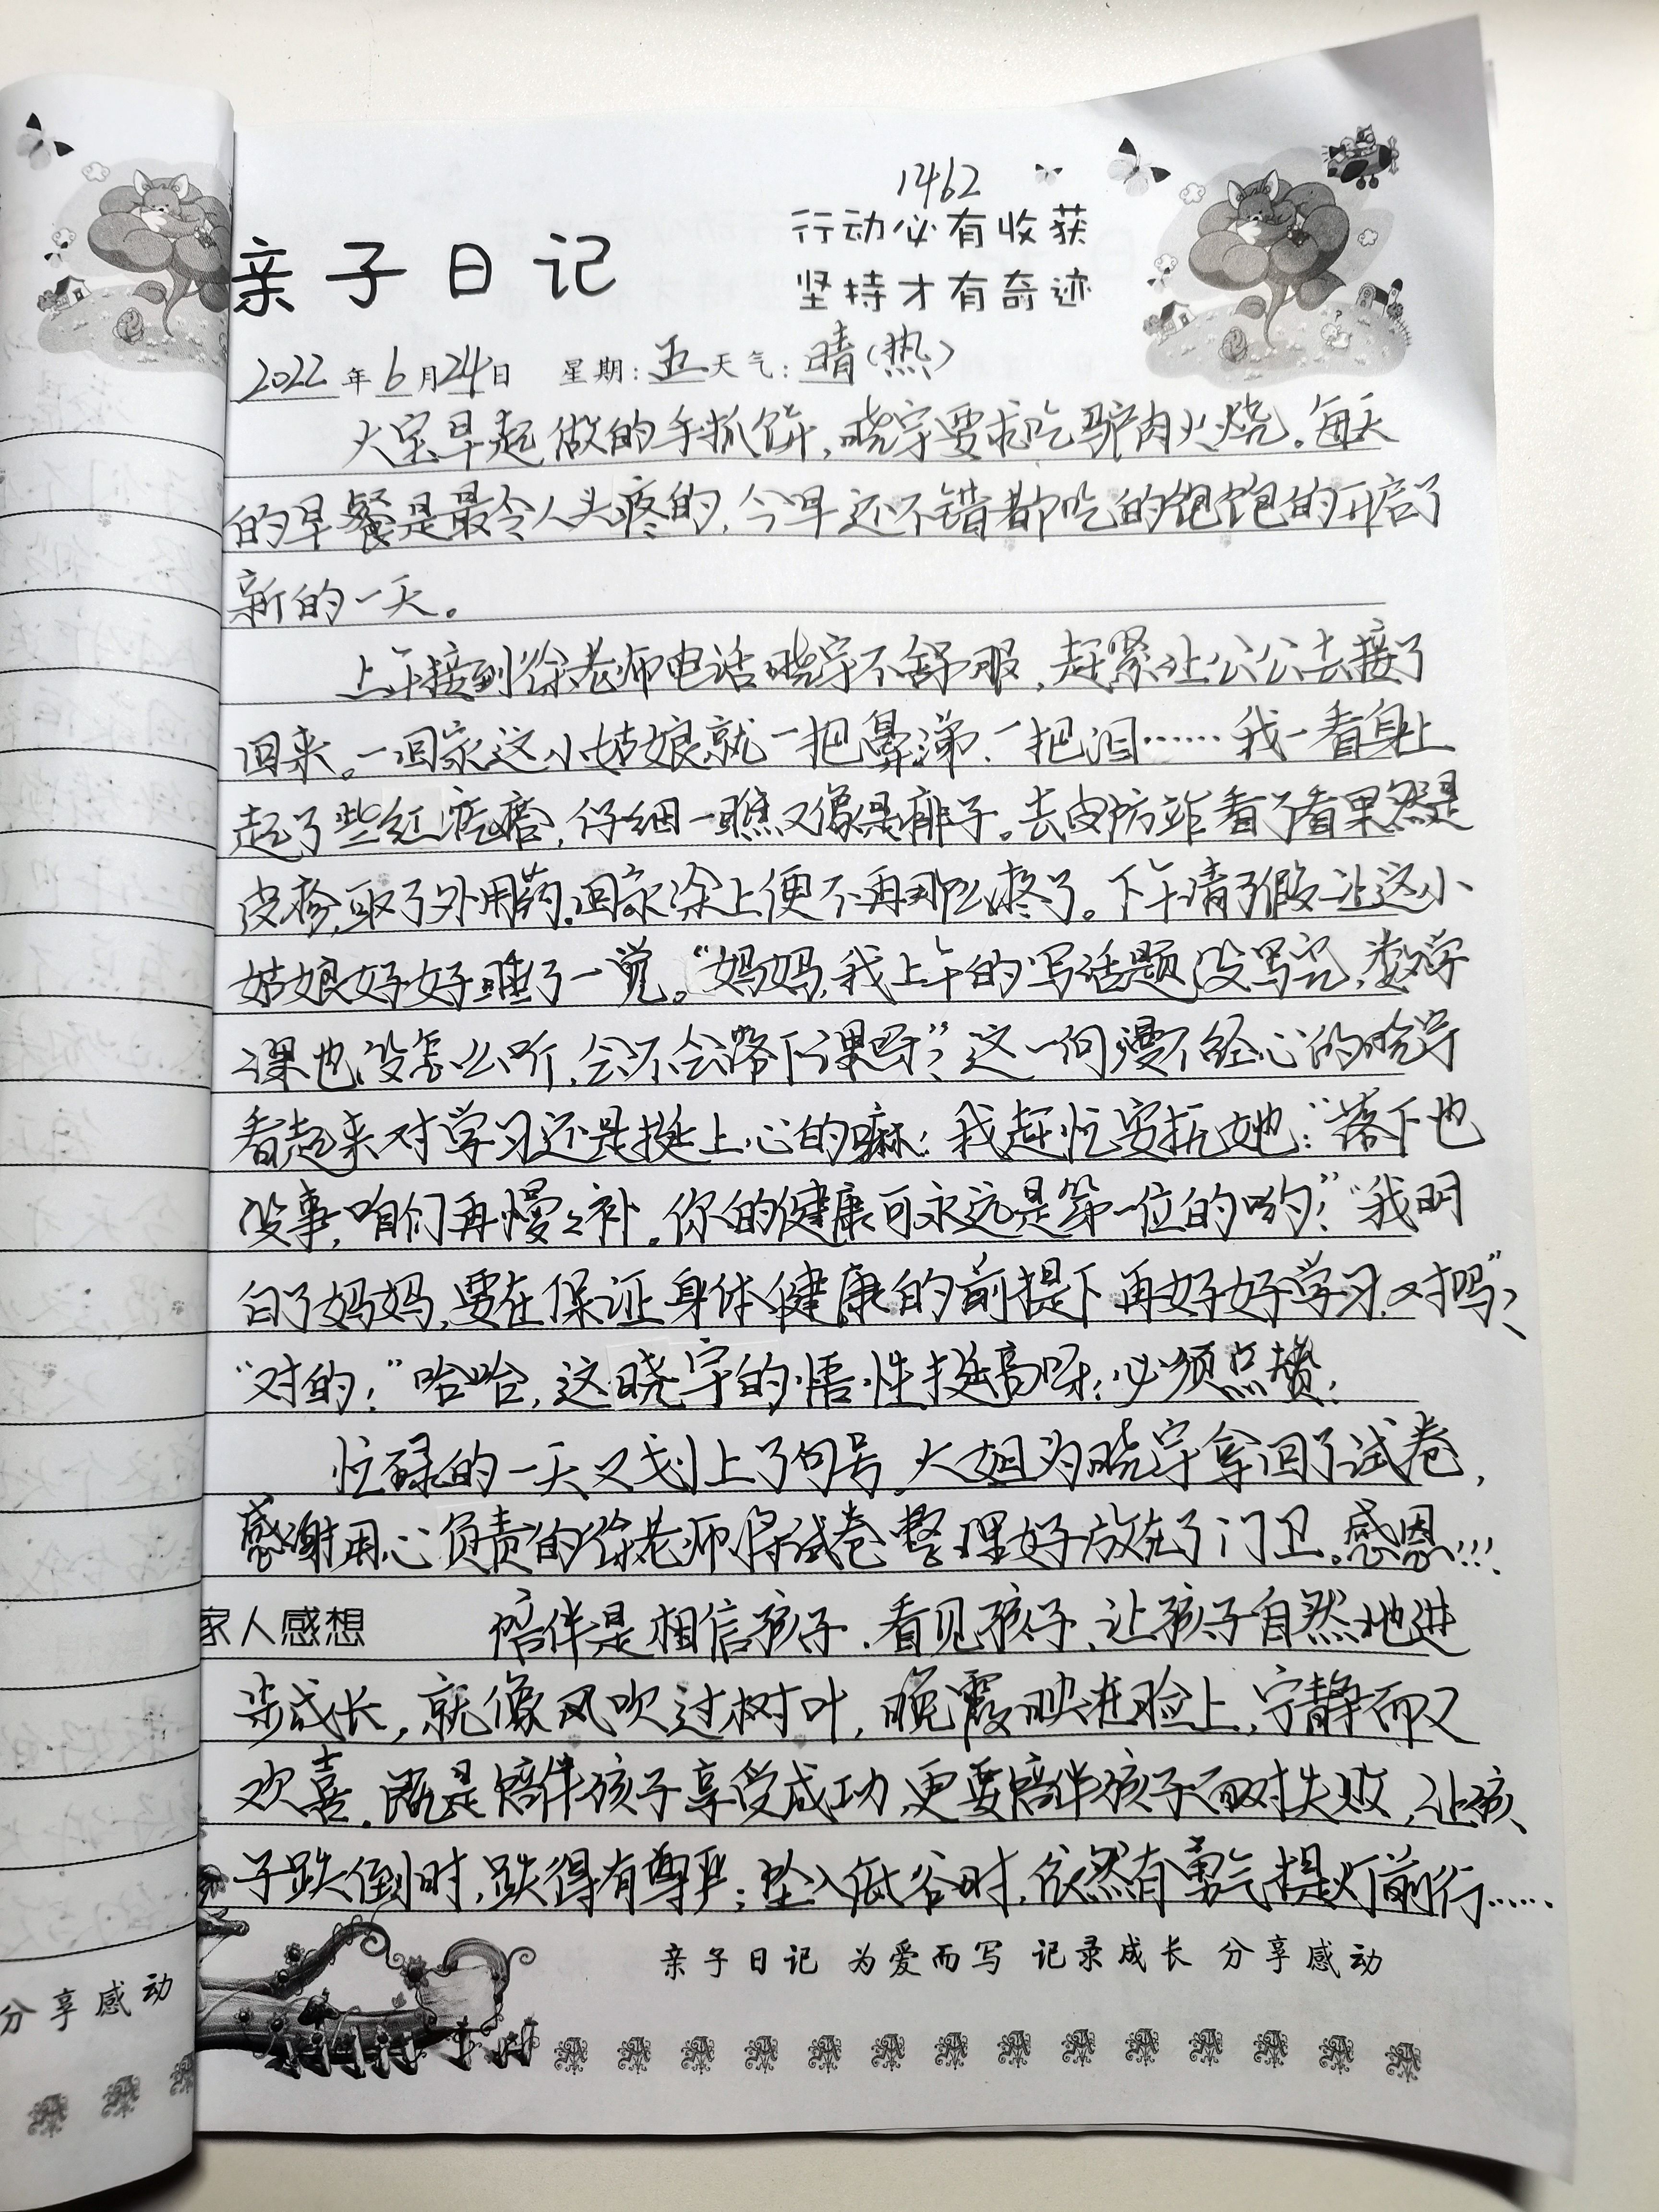 1462
亲子日记
行动必有收获
坚持才有奇迹
2022年6月24日 星期:五 天气:晴(热)
大宝早起做的手抓饼,晓宇要求吃驴肉火烧。每天
的早餐是最令人头疼的,今早还不错都吃的饱饱的开启了
新的一天。
上午接到徐老师电话晓宇不舒服,赶紧让公公去接了
回来。一回家这小姑娘就一把鼻涕、一把泪……我一看身上
起了些红疙瘩,仔细一瞧又像是痱子。去皮防站看了看果然是
皮疹,取了外用药。回家涂上便不再那么痒了。下午请了假让这小
姑娘好好睡了一觉。“妈妈,我上午的写话题没写完,数学
课也没怎么听,会不会落下课呀”?这一向漫不经心的晓宇
看起来对学习还是挺上心的嘛!我赶忙安抚她:“落下也
没事,咱们再慢慢补。你的健康可永远是第一位的哟!”“我明
白了妈妈,要在保证身体健康的前提下再好好学习,对吗”?
“对的!”哈哈,这晓宇的悟性挺高呀!必须点赞!
忙碌的一天又划上了句号。大姐为晓宇拿回了试卷,
感谢用心负责的徐老师将试卷整理好放在了门卫。感恩!!!
家人感想 陪伴是相信孩子、看见孩子、让孩子自然地进
步成长,就像风吹过树叶,晚霞映进脸上,宁静而又
欢喜。既是陪伴孩子享受成功,更要陪伴孩子面对失败,让孩
子跌倒时,跌得有尊严;坠入低谷时,依然有勇气提灯前行……
亲子日记 为爱而写 记录成长 分享感动
分享感动